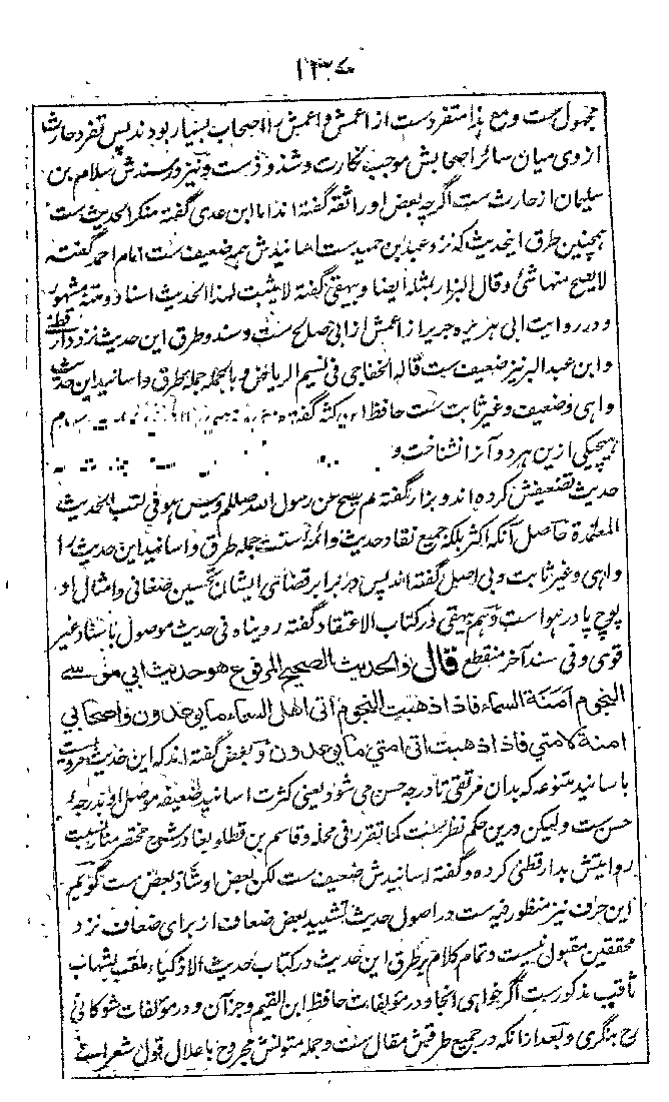 ۱۳۷
مجهول ست و مع هذا متفرد ست از اعمش و اعمش را اصحاب بسیار بودند پس تفرد حارث
از وی میان سائر اصحابش موجب نکارت و شذوذ ست و نیز در سندش سلام بن
سلیمان از حارث ست اگرچه بعض او را ثقه گفته اند اما ابن عدی گفته منکر الحدیث ست
همچنین طرق اینحدیث که نزد عبد بن حمید ست اسانیدش همه ضعیف ست امام احمد گفته
لا یصح منها شئ وقال البزار بمثله ایضا و بیهقی گفته لا یثبت لهذا الحدیث اسناد و متنه مشهور
و در روایت ابی هریره جریر از اعمش از ابی صالح ست و سند و طرق این حدیث نزد دار قطنی
و ابن عبد البر نیز ضعیف ست قاله الخفاجی فی نسیم الریاض و بالجمله جمله طرق و اسانید این حدیث
واهی و ضعیف و غیر ثابت ست حافظ ابن کثیر گفته
هیچیکی ازین هر دو آنرا نشناخت و
حدیث تضعیفش کرده اند و بزار گفته لم یصح عن رسول الله صللم ولیس هو فی کتب الحدیث
المعتمدة حاصل آنکه اکثر بلکه جمیع نقاد حدیث و ائمه سنت جمله طرق و اسانید این حدیث را
واهی و غیر ثابت و بی اصل گفته اند پس در برابر قضای ایشان تحسین صغانی و امثال او
پوچ پا در هوا ست و هم بیهقی در کتاب الاعتقاد گفته رویناه فی حدیث موصول باسناد غیر
قوی و فی سند آخر منقطع قال والحدیث الصحیح المرفوع هو حدیث ابی موسی
النجوم امنة السماء فاذا ذهبت النجوم اتی اهل السماء ما یوعدون واصحابی
امنة لامتی فاذا ذهبت اتی امتی ما یوعدون و بعض گفته اند که این حدیث مرویست
باسانید متنوعه که بدان مرتقی تا درجه حسن می شود یعنی کثرت اسانید ضعیفه موصل او بدرجهٔ
حسن ست ولیکن درین حکم نظر ست کما تقرر فی محله و قاسم بن قطلوبغا در شرح مختصر منار نسبت
روایتش بدارقطنی کرده و گفته اسانیدش ضعیف ست لکن بعض او شاد بعض ست گویم
این حرف نیز منظور فیه ست در اصول حدیث تشیید بعض ضعاف از برای ضعاف نزد
محققین مقبول نیست و تمام کلام بر طرق این حدیث در کتاب حدیث الاذکیاء ملقب بشهاب
ثاقب مذکور ست اگر خواهی آنجا و در مؤلفات حافظ ابن القیم و جز آن و در مؤلفات شوکانی
رح بنگری و بعد از انکه در جمیع طرقش مقال ست و جمله متونش مجروح باعلال قول شعرانی